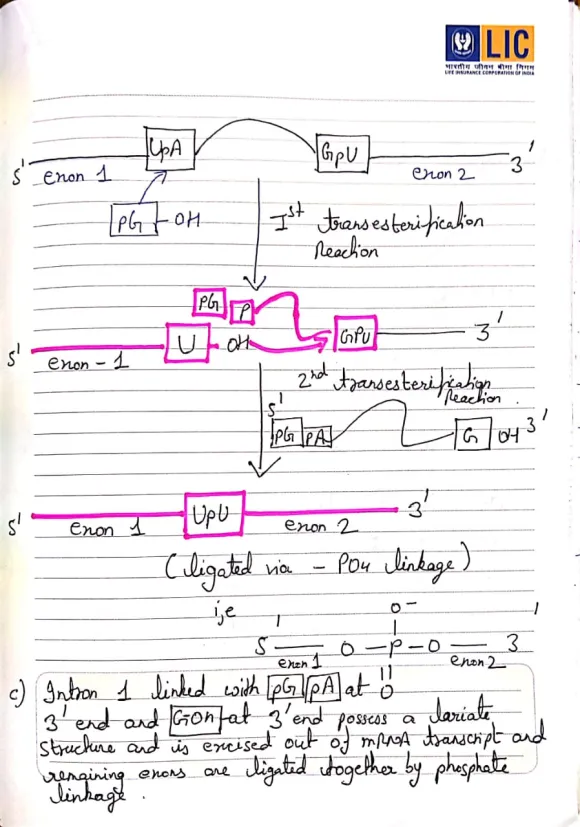 LIC
भारतीय जीवन बीमा निगम
LIFE INSURANCE CORPORATION OF INDIA
UpA GpU
5' exon 1 exon 2 3'
pG - OH
Ist transesterification
Reaction
pG P
5' exon - 1 U - OH GPU 3'
2nd transesterification
Reaction.
5' pG pA G OH 3'
5' exon 1 UpU exon 2 3'
(ligated via - PO4 linkage)
i,e
O-
5' exon 1 O - P - O exon 2 3'
O
c) Intron 1 linked with pG pA at
3' end and GOH at 3' end possess a lariate
structure and is excised out of mRNA transcript and
remgining exons are ligated together by phosphate
linkage.